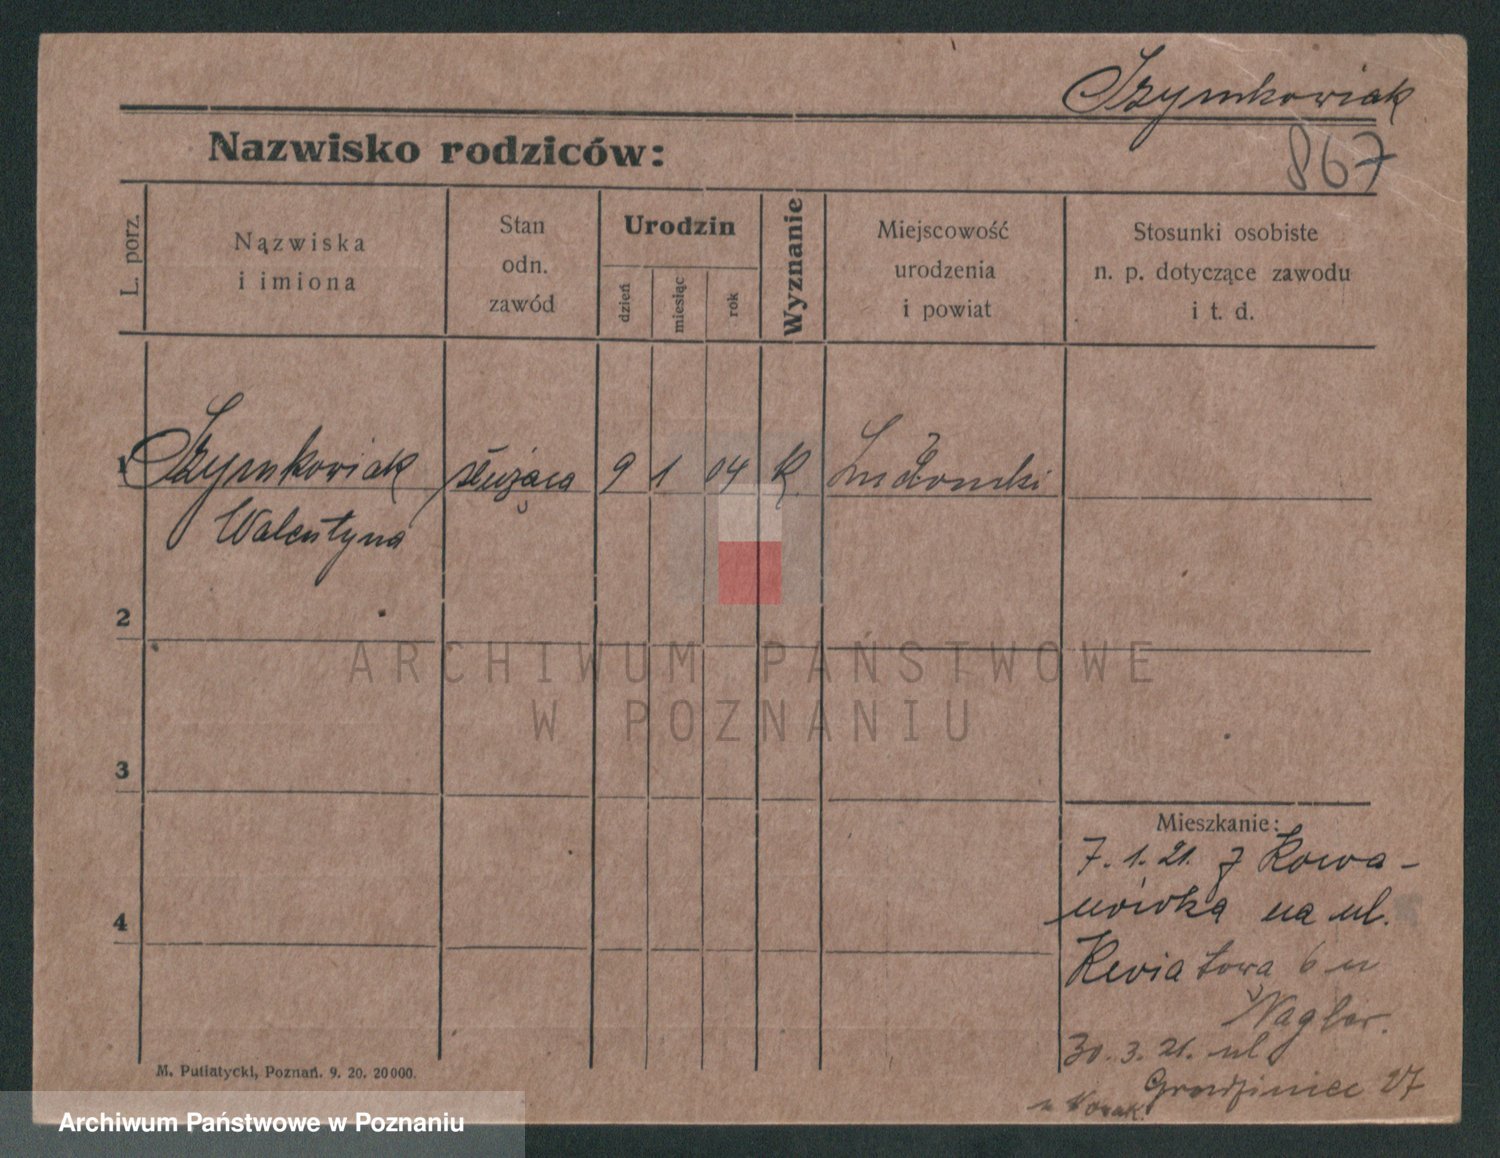 Szymkowiak
867
Nazwisko rodziców:
L. porz.
Nązwiska
i imiona
Stan
odn.
zawód
Urodzin
dzień
miesiąc
rok
Wyznanie
Miejscowość
urodzenia
i powiat
Stosunki osobiste
n. p. dotyczące zawodu
i t. d.
1 Szymkowiak służąca 9 1 04 K. Ludomki
Walentyna
2
3
4
Mieszkanie:
7.1.21. z Kowa-
nówka na ul.
Kwiatową 6 u
Nagler.
30.3.21. ul
27
M. Putiatycki, Poznań. 9. 20. 20000.
ARCHIWUM PAŃSTWOWE
W POZNANIU
Archiwum Państwowe w Poznaniu